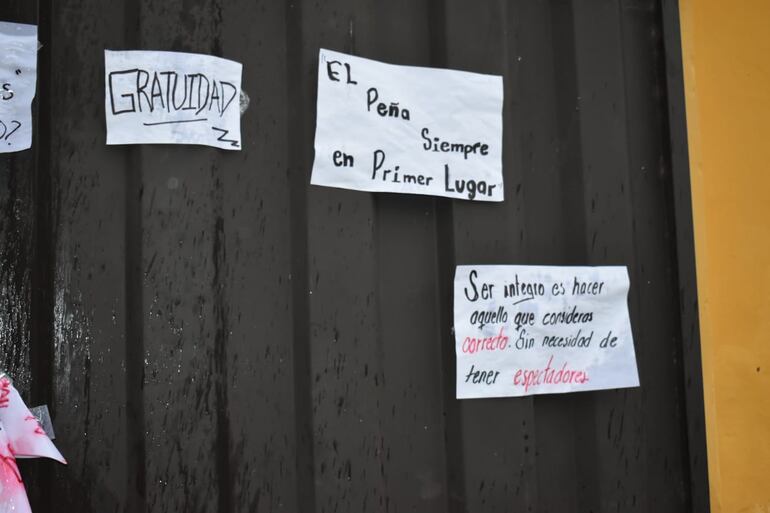 "
s
O?
GRATUIDAD
"EL
Peña
Siempre
en Primer Lugar
Ser integro es hacer
aquello que consideras
correcto. Sin necesidad de
tener espectadores